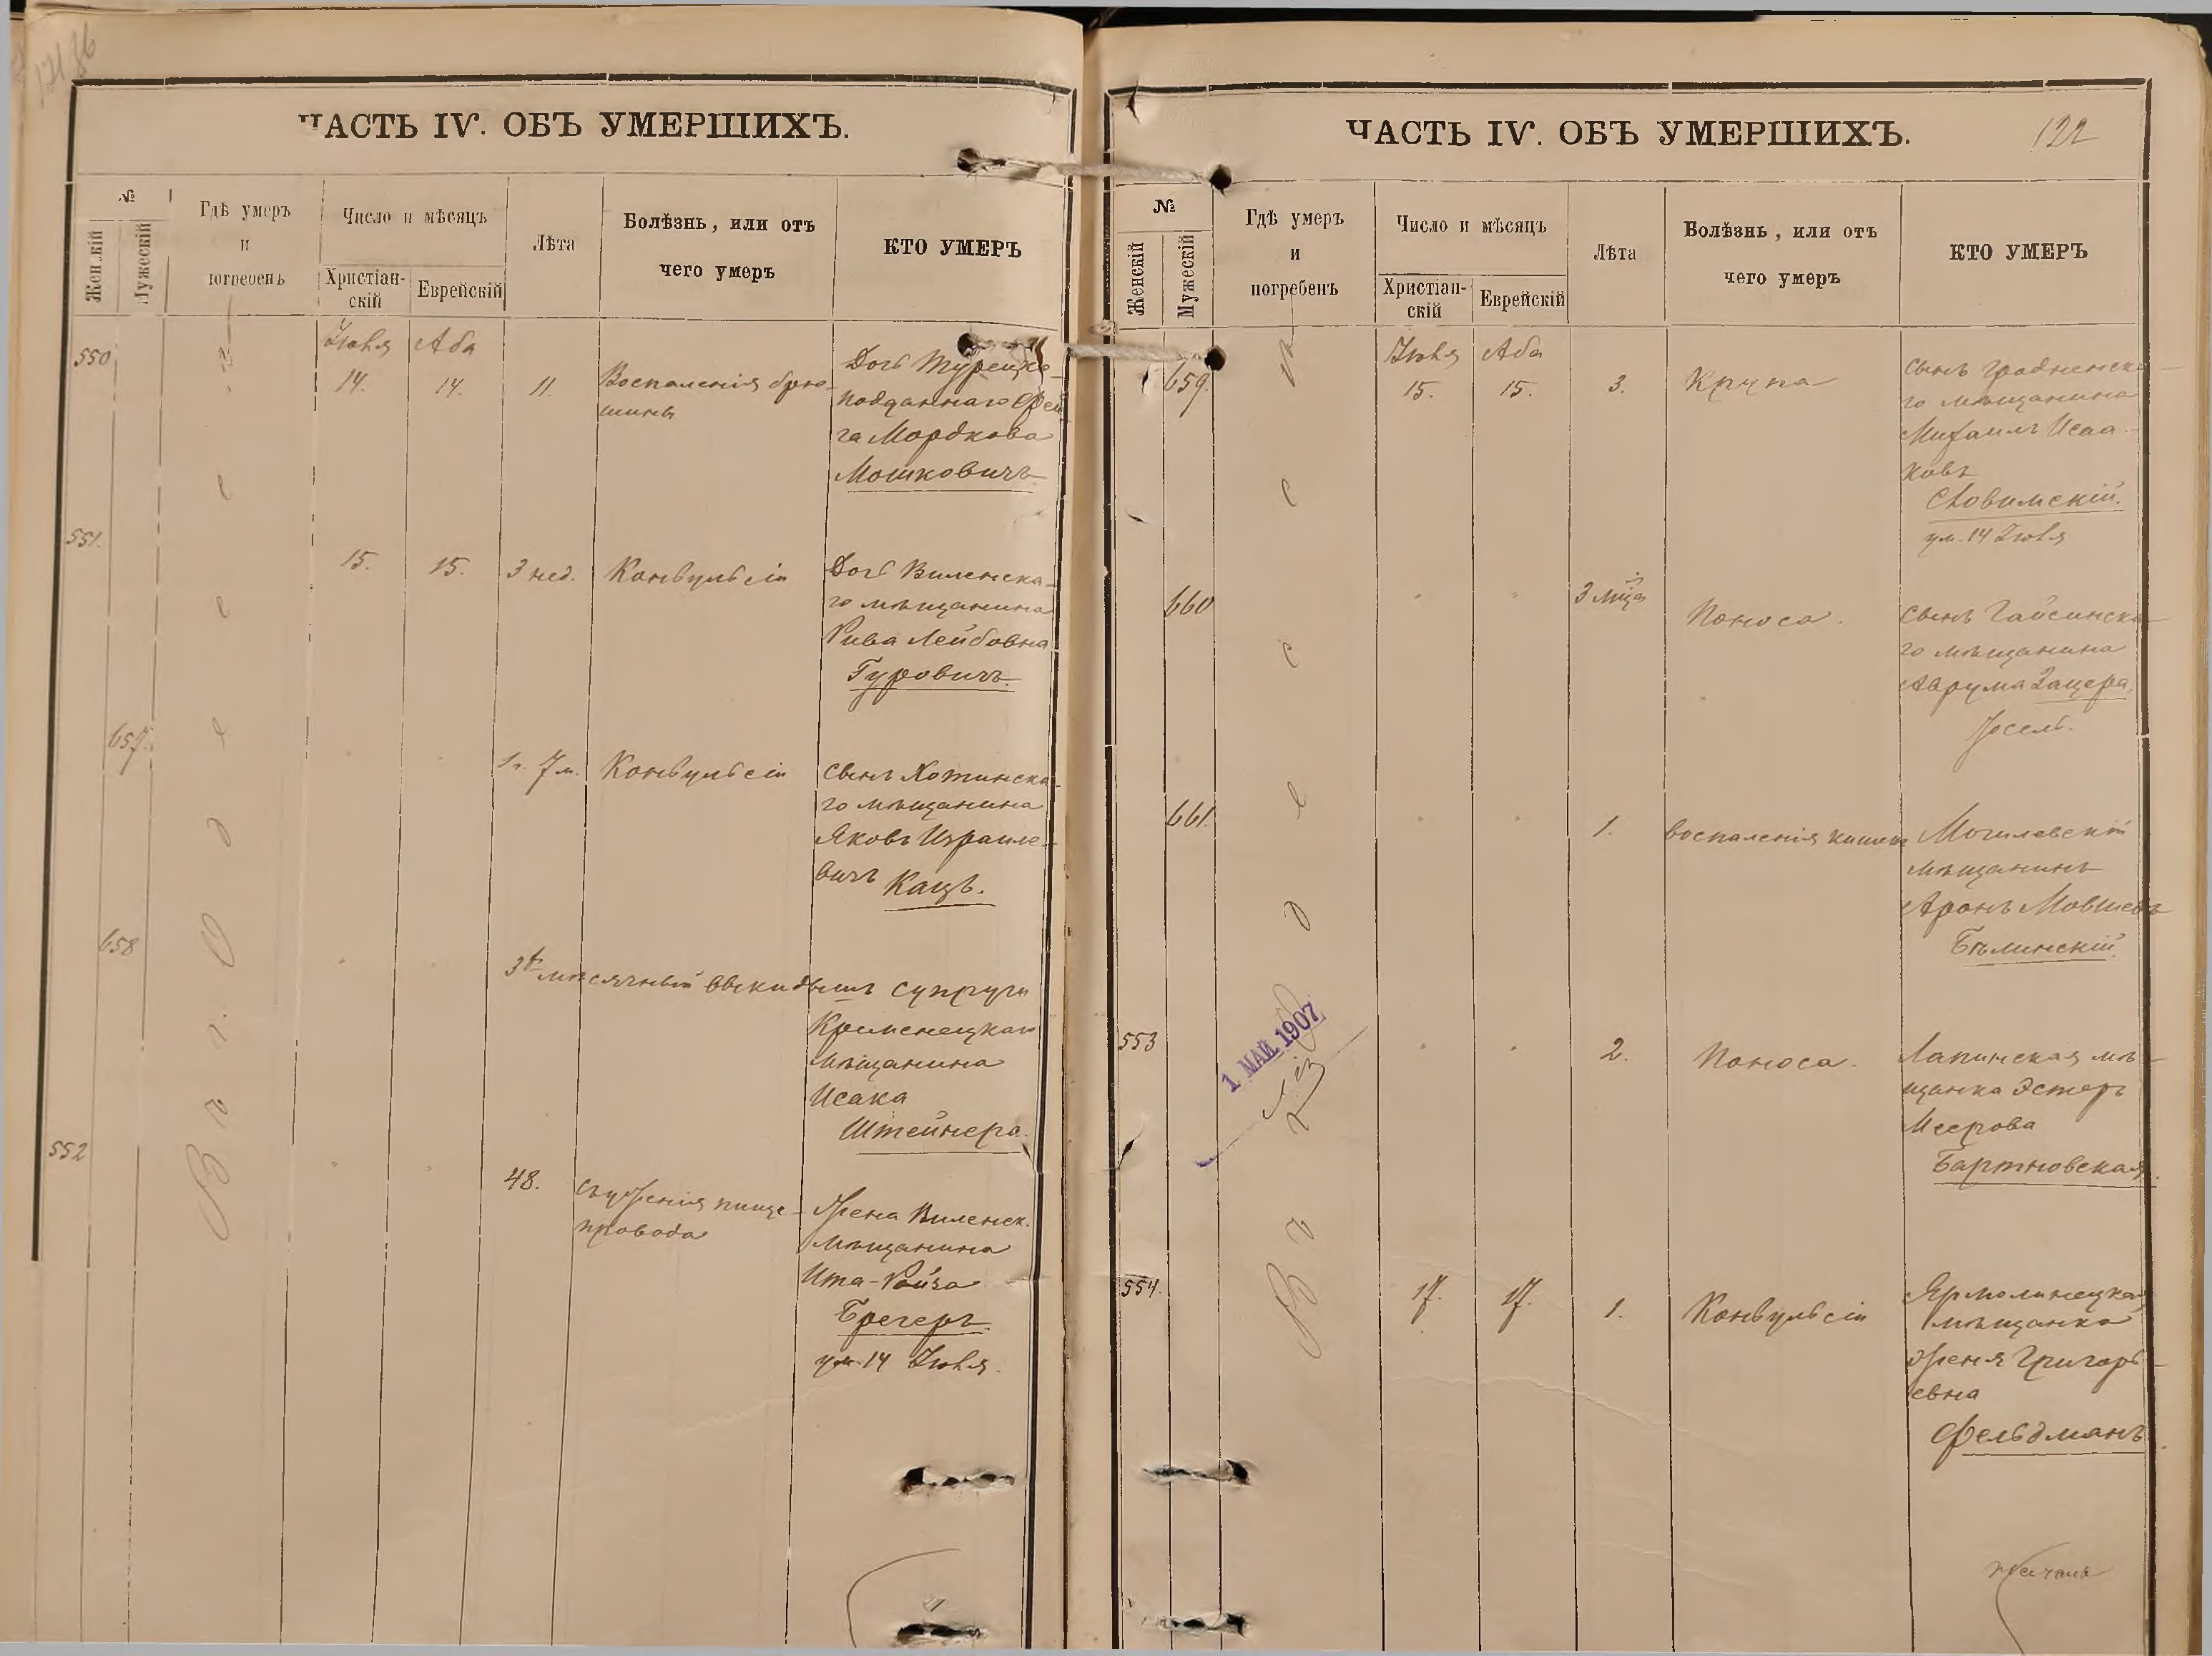 ЧАСТЬ IV. ОБЪ УМЕРШИХЪ.
№
Женскій
Мужескій
Гдѣ умеръ
и
погребенъ
Число и мѣсяцъ
Христіан-
скій
Еврейскій
Лѣта
Болѣзнь, или отъ
чего умеръ
КТО УМЕРЪ
Въ г. Одессѣ
550
Іюля
14.
Аба
14.
11.
Воспаленія брю-
шины
Дочь Турецко-
подданнаго Фей
га Мордкова
Мошковичъ
551.
15.
15.
3 нед.
Конвульсіи
Дочь Виленска-
го мѣщанина
Рива Лейбовна
Гуровичъ.
657.
1г. 7м.
Конвульсіи
сынъ Хотинска-
го мѣщанина
Яковъ Израиле-
вичъ Кацъ.
658
3х мѣсячный выкидышъ супруги
Кременецкаго
мѣщанина
Исака
Штейнера.
552
48.
съуженія пище-
провода
Жена Виленск.
мѣщанина
Ита-Ройза
Брегеръ.
ум. 14 Іюля.
ЧАСТЬ IV. ОБЪ УМЕРШИХЪ.
122
№
Женскій
Мужескій
Гдѣ умеръ
и
погребенъ
Число и мѣсяцъ
Христіан-
скій
Еврейскій
Лѣта
Болѣзнь, или отъ
чего умеръ
КТО УМЕРЪ
Въ г. Одессѣ
1 МАЙ 1907
659.
Іюля
15.
Аба
15.
3.
Крупа
сынъ Гродненска-
го мѣщанина
Михаилъ Исаа-
ковъ
Словимскій.
ум. 14 Іюля
660
3 мѣс.
Поноса.
сынъ Гайсинска-
го мѣщанина
Аврума Зацера,
Іосель.
661.
1.
воспаленія кишекъ
Могилевскій
мѣщанинъ
Аронъ Мовшевъ
Бѣлинскій.
553
2.
Поноса.
Лапинская мѣ-
щанка Эстеръ
Меерова
Бартновская.
554.
17.
17.
1.
Конвульсіи
Ярмолинецкая
мѣщанка
Женя Григорь-
евна
Фельдманъ